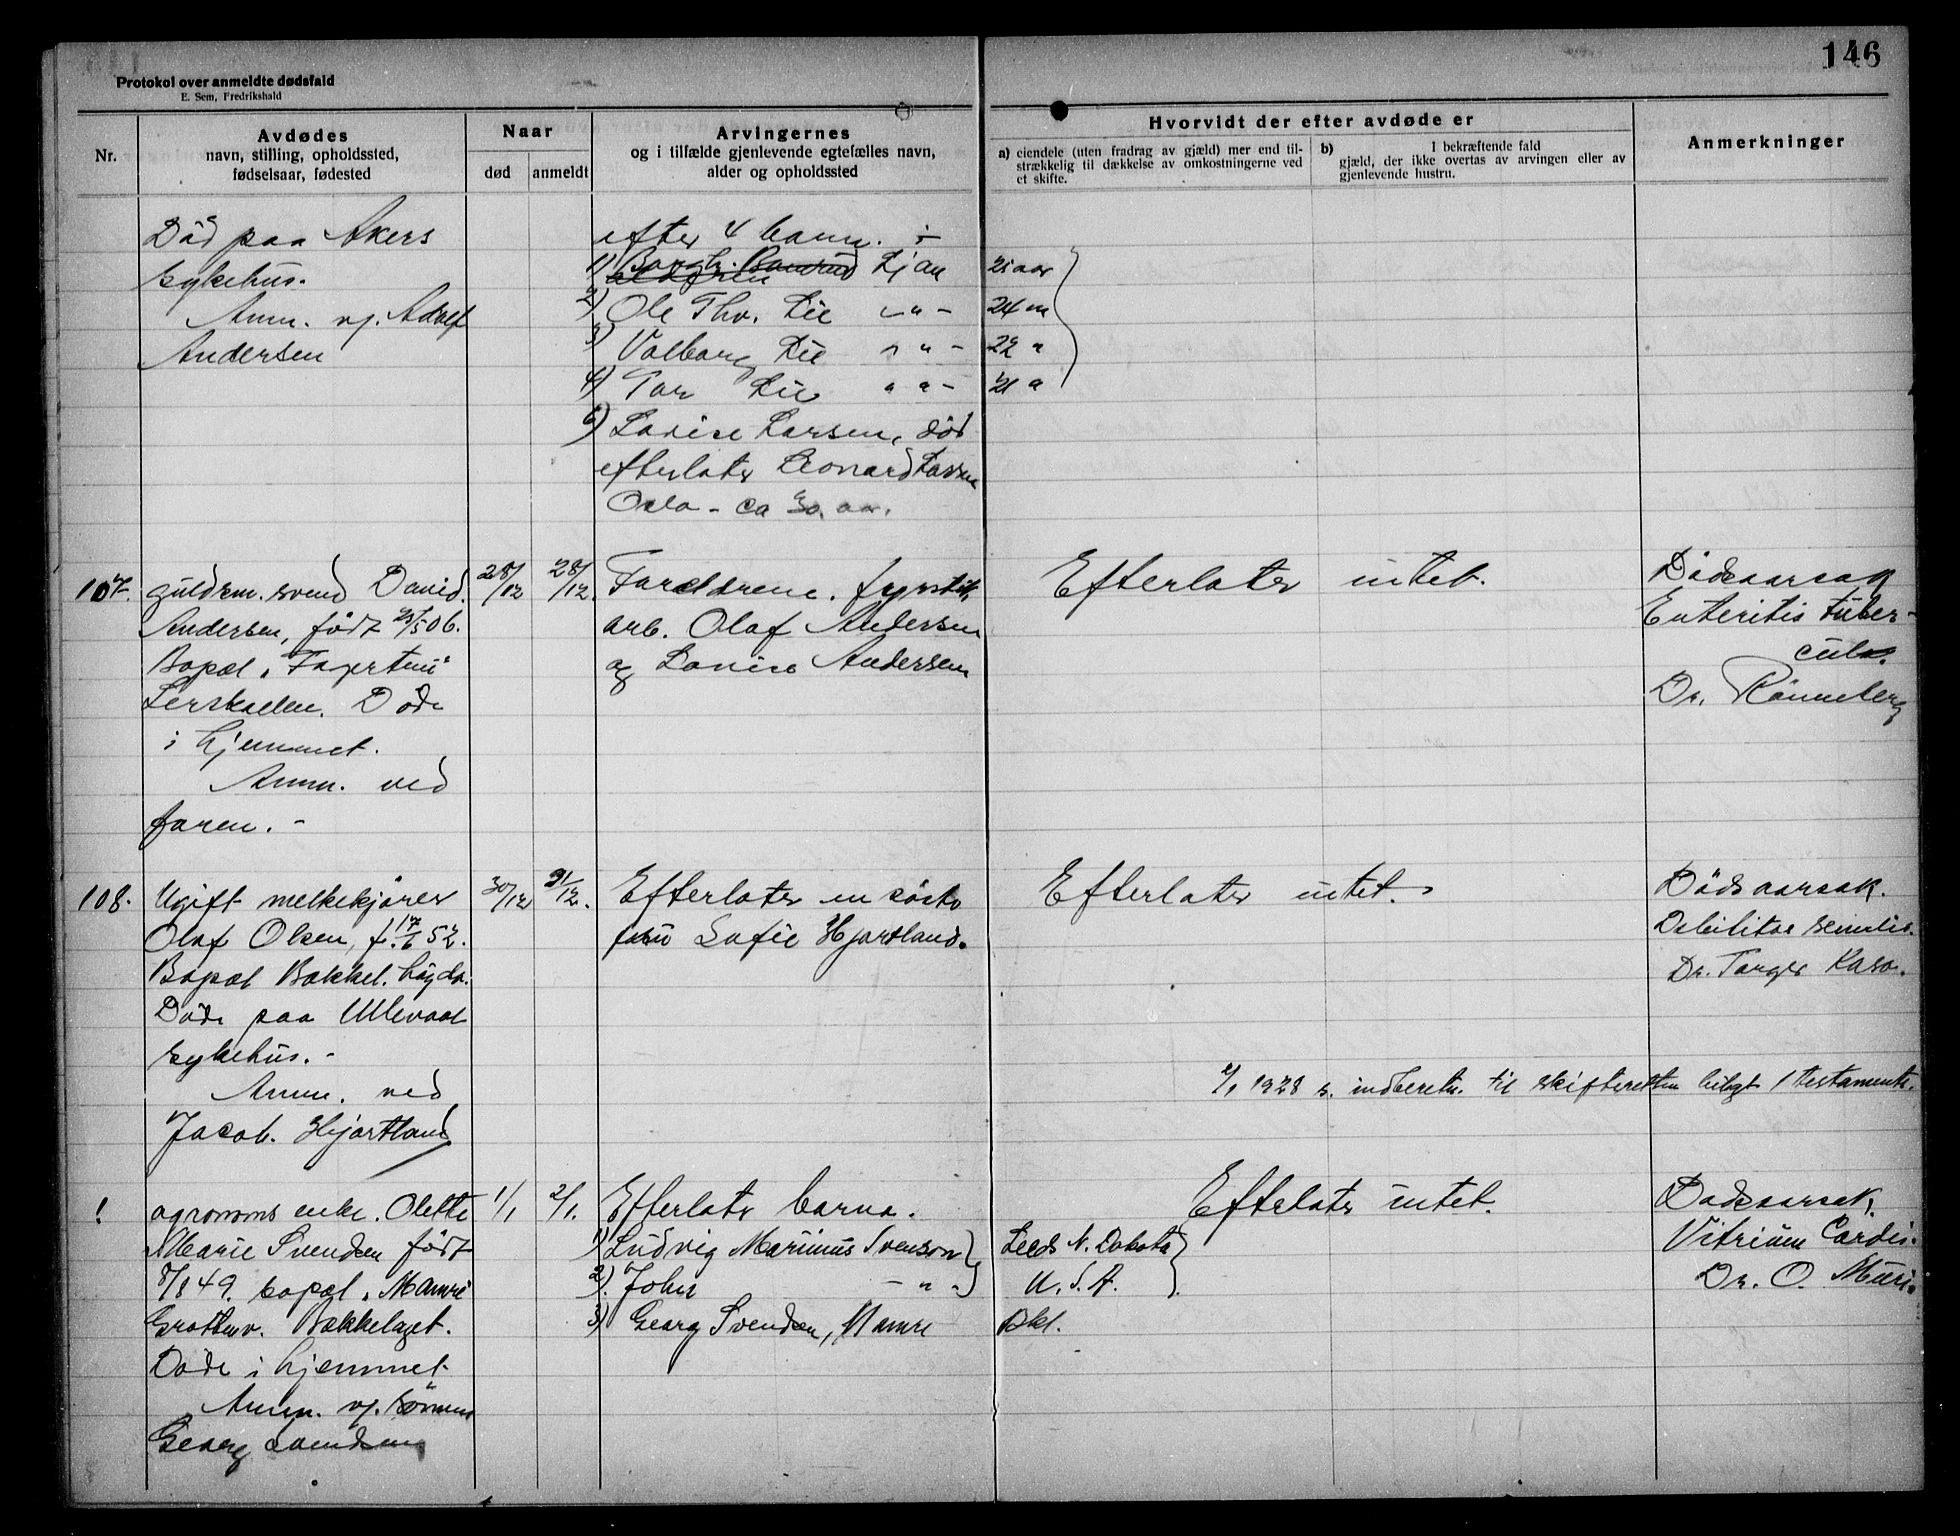 146
Protokol over anmeldte dødsfald
E. Sem, Fredrikshald
Nr.
Avdødes
navn, stilling, opholdssted,
fødselsaar, fødested
Naar
død
anmeldt
Arvingernes
og i tilfælde gjenlevende egtefælles navn,
alder og opholdssted
Hvorvidt der efter avdøde er
a) eiendele (uten fradrag av gjæld) mer end til-
strækkelig til dækkelse av omkostningerne ved
et skifte.
b) I bekræftende fald
gjæld, der ikke overtas av arvingen eller av
gjenlevende hustru.
Anmerkninger
Död paa Akers
sykehus.
Anm. v. Adolf
Andersen
efter 4 barn.
1) Ljan
2) Ole Thv. Lie - " - 24
3) Valborg Lie " " - 22 "
4) Tor Lie " " - 21 "
6) Lovise Larsen, död
efterlater Leonard Larsen
Oslo - ca 30. aar.
107. guldsm. svend David
Andersen, født 25/5 06.
Bopæl "Fagertun"
Lerskallen. Döde
i hjemmet.
Anm. ved
faren. -
28/12
28/12.
Foreldrene. fyrstik.
arb. Olaf Andersen
og Lovise Andersen
Efterlater intet.
Dödsaarsak
Enteritis tuber-
cul.
Dr. Rönneberg
108. Ugift melkekjörer
Olaf Olsen, f. 17/6 52.
Bopæl Bækkel. högda.
Döde paa Ullevaal
sykehus. -
Anm. ved
Jacob. Hjortland
30/12
31/12.
Efterlater en söster
fru Sofie Hjortland.
Efterlater intet.
Dödsaarsak.
Debilitas senilis.
Dr. Torger Kaso.
1928 s. indberetn. til skifteretten bilagt 1 testamente.
1 agronoms enke. Olette
Marie Svendsen født
8/8 49. bopæl "Mamre"
Grottenv. Bækkelaget.
Döde i hjemmet
Anm. v. sönnen
Georg Svendsen
1/1
2/1.
Efterlater barna.
1) Ludvig Marinius Svenson } Leeds N. Dakota
2) John - " " } U.S.A.
3) Georg Svendsen, Mamre Bkl.
Efterlater intet.
Dödsaarsak.
Vitrium Cordis.
Dr. O. Muri.